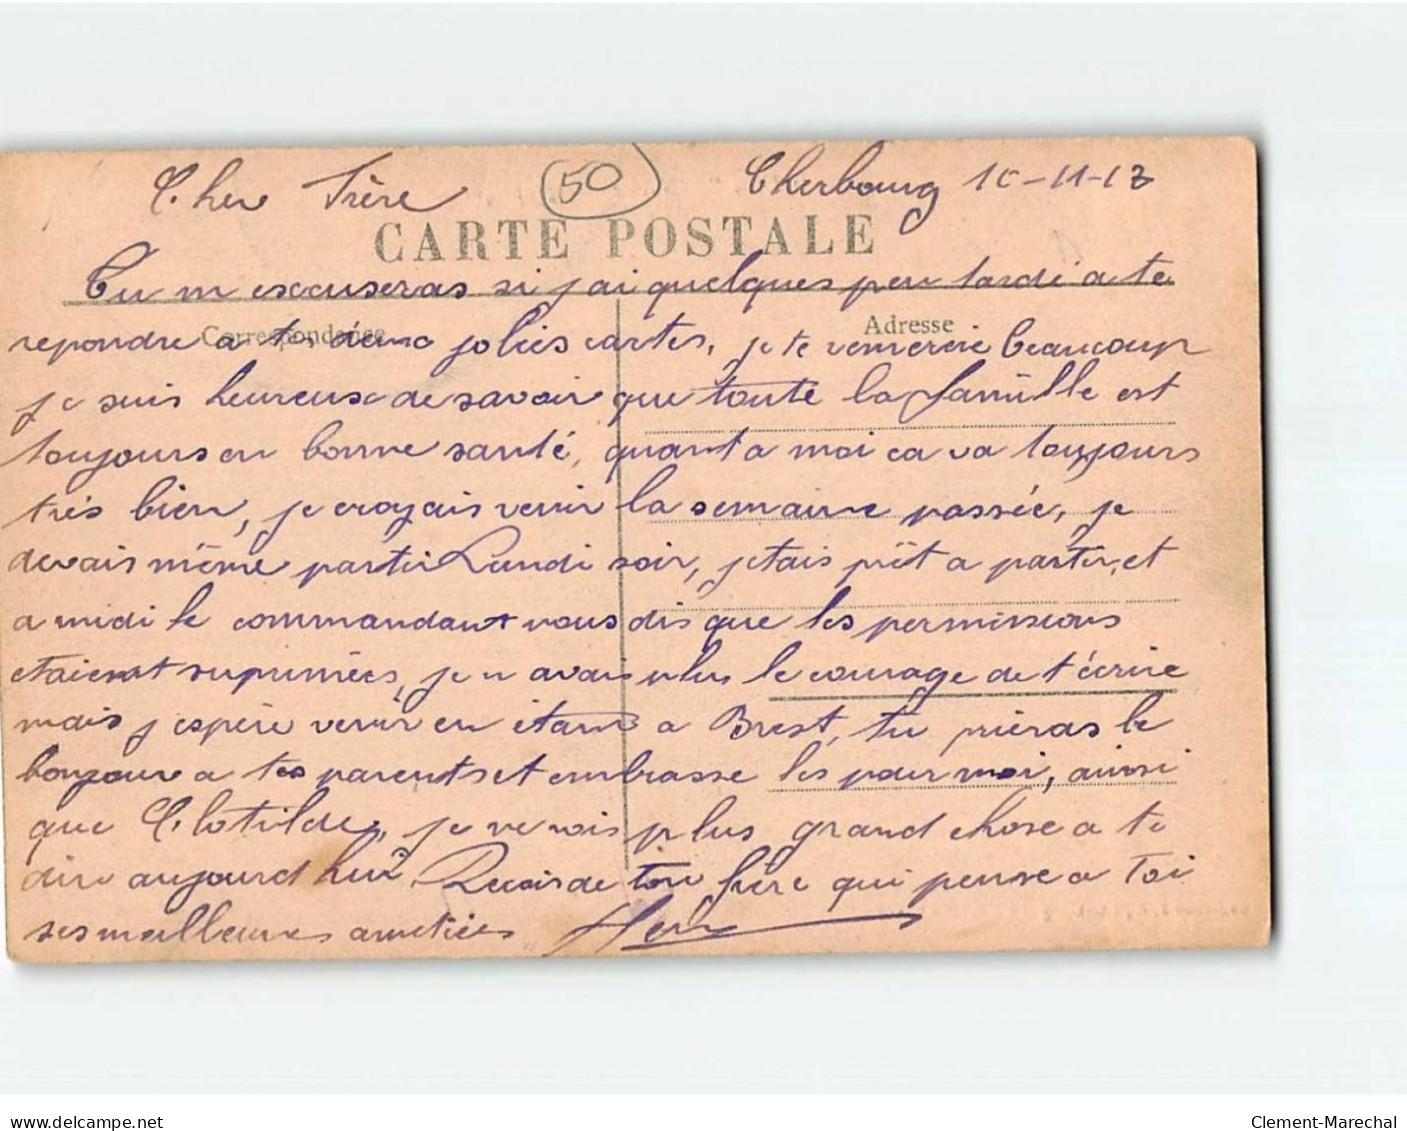 Cher Frère
50
Cherbourg
CARTE POSTALE
Tu m excuseras si j ai quelques peu tardé a te
Correspondance
Adresse
repondre a tes deux jolies cartes, je te remercie beaucoup
je suis heureux de savoir que toute la famille est
toujours en bonne santé, quant a moi ca va toujours
très bien, je croyais venir la semaine passée, je
devais même partir Lundi soir, jetais prêt a partir, et
a midi le commandant nous dis que les permissions
etaient suprimées, je n avais plus le courage de t'écrire
mais j'espère venir en étant a Brest, tu prieras le
bonjour a tes parents et embrasse les pour moi, ainsi
que Clotilde, je ne vois plus grand chose a te
dire aujourd hui. Recois de ton frère qui pense a Toi
ses meilleures amitiées
www.delcampe.net
Clement-Marechal